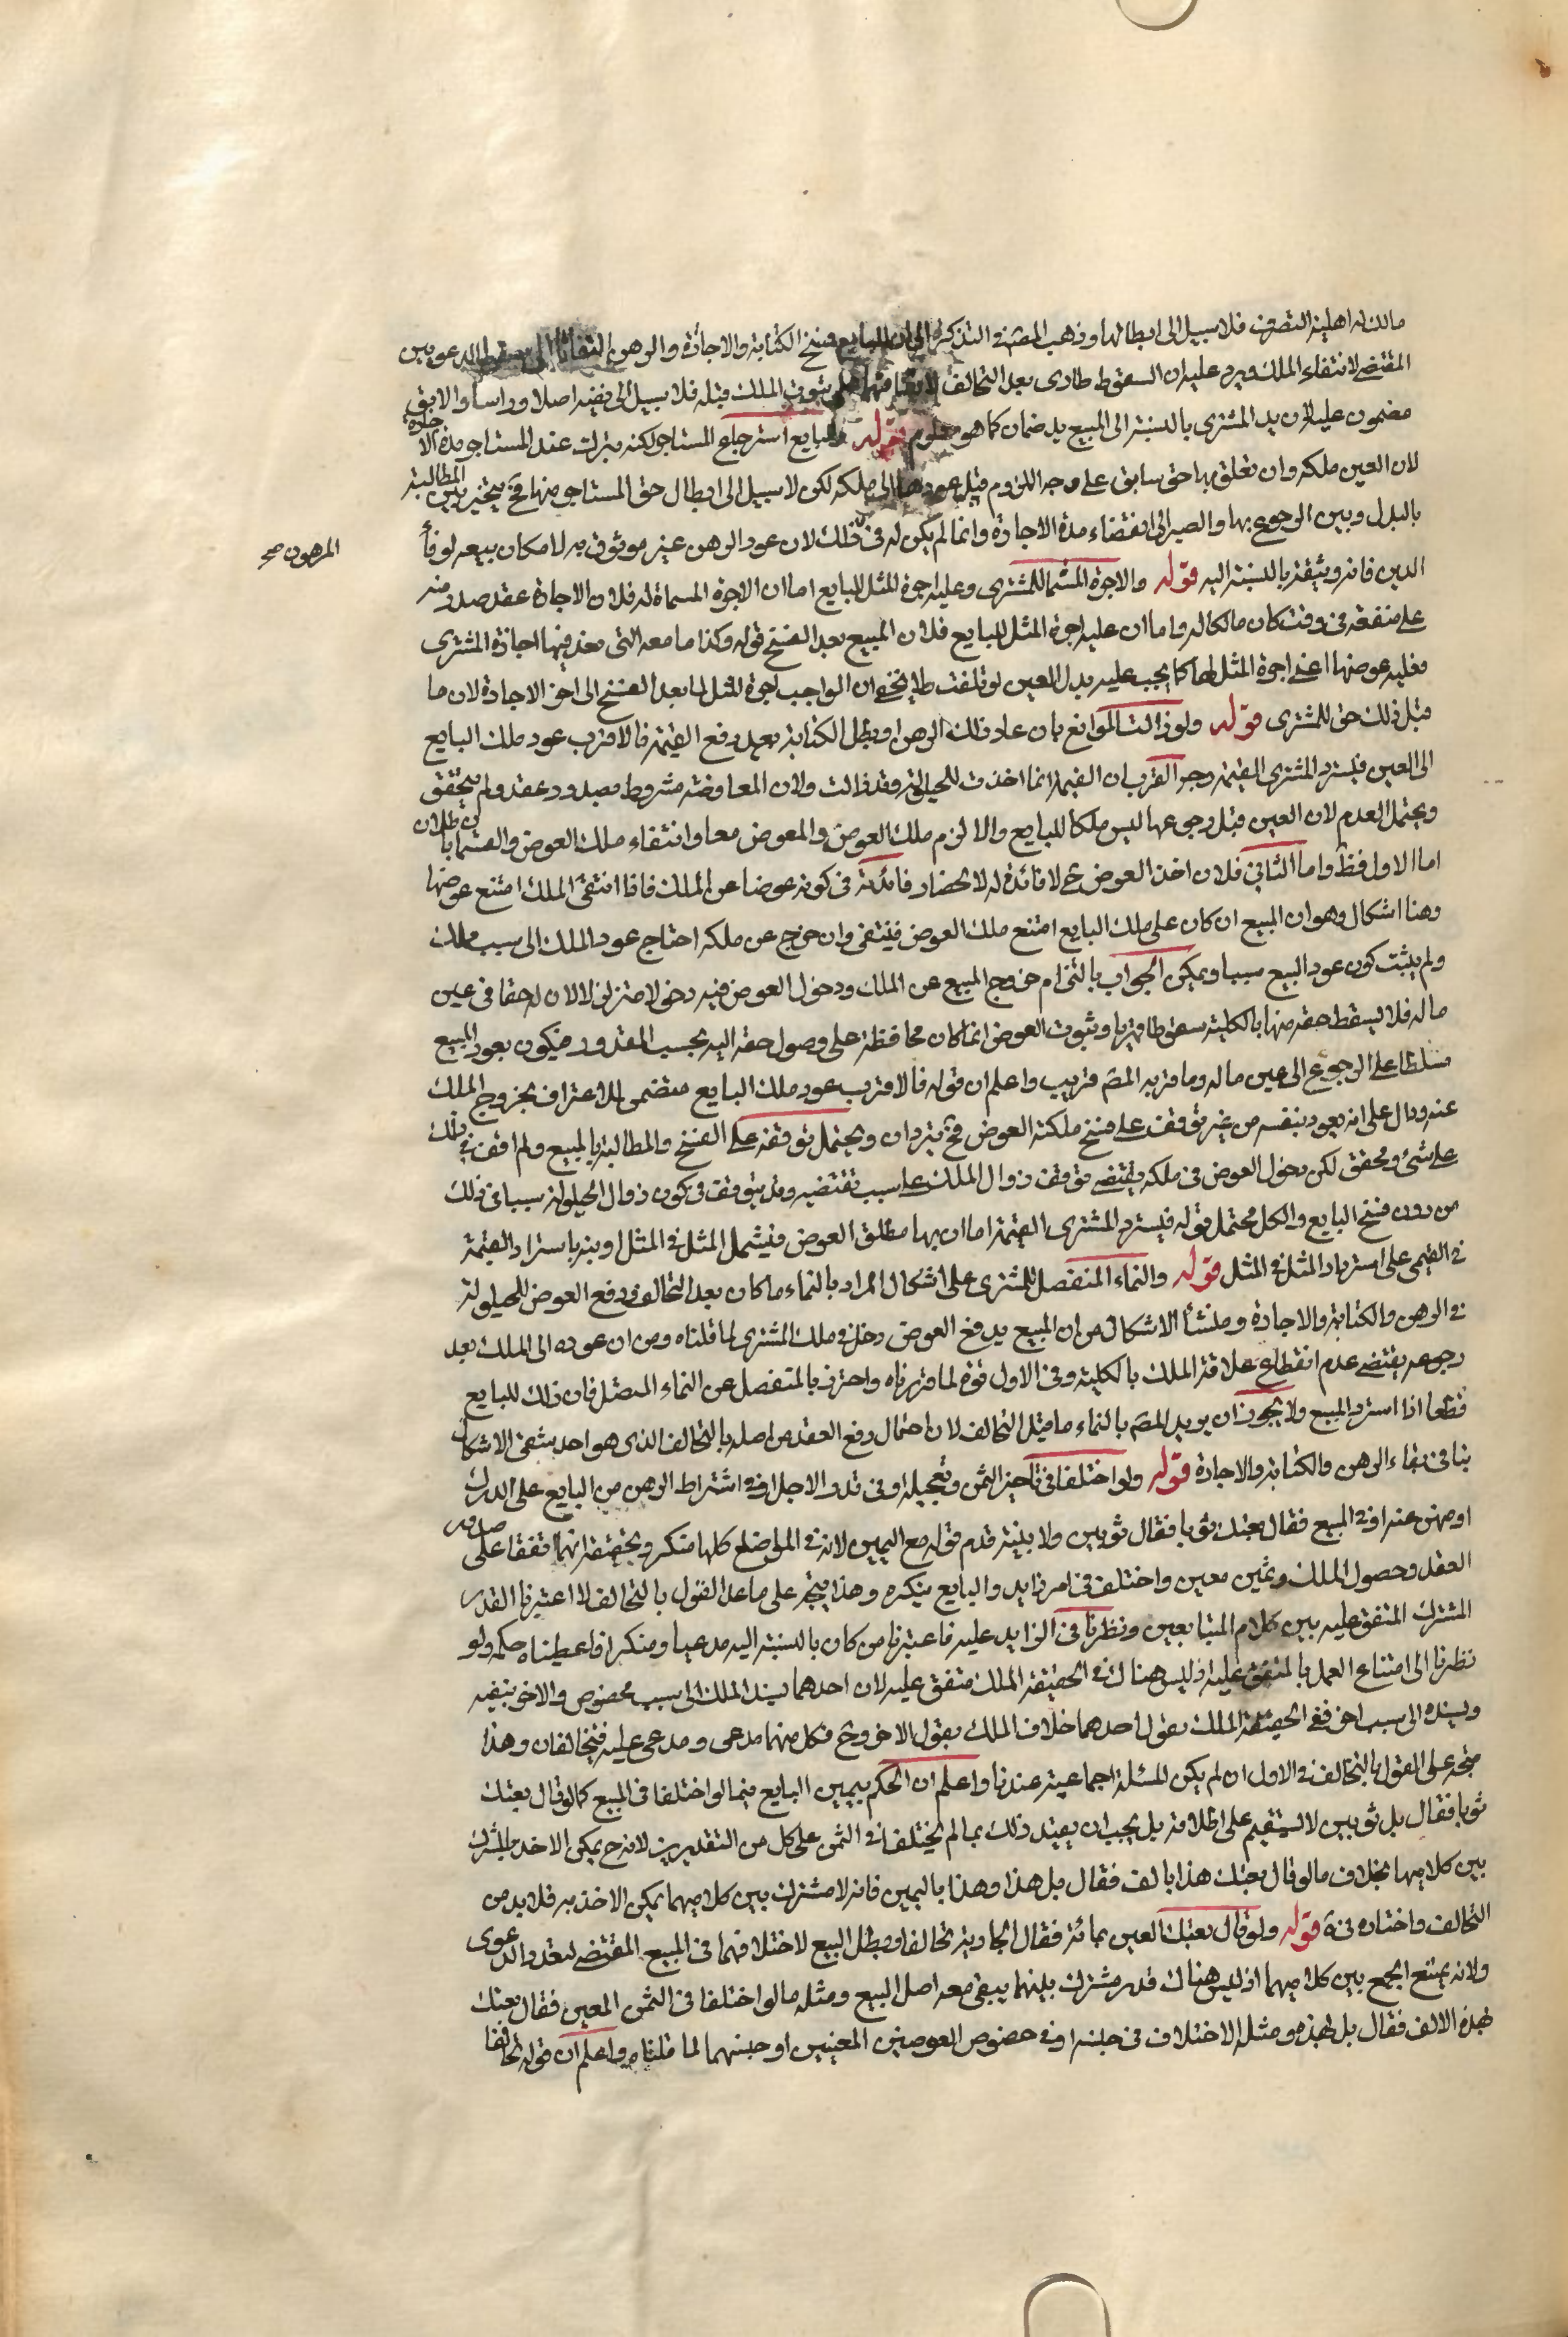 مالك له اهلية التصرف فلا سبيل الى ابطالها وذهب المصنف في التذكرة الى ان للبايع فسخ الكتابة والاجارة والرهن التفاتا الى سقوط الدعويين
المقتضي لانتفاء الملك ويرد عليه ان السقوط طارى بعد التحالف لاتفاقهما على ثبوت الملك قبله فلا سبيل الى نفيه اصلا وراسا والابق
مضمون عليه لان يد المشترى بالنسبة الى المبيع يد ضمان كما هو معلوم قوله وللبايع استرجاع المستاجر لكنه يترك عند المستاجر مدة الاجارة
لان العين ملكه وان تعلق بها حق سابق على وجه اللزوم قبل عودها الى ملكه لكن لا سبيل الى ابطال حق المستاجر منها فح يتخير بين المطالبة
بالبدل وبين الرجوع بها والصبر الى انقضاء مدة الاجارة وانما لم يكن له في ذلك لان عود الرهن غير موثوق به لامكان بيعه لوفاء
المرهون صح
الدين فانه وثيقة بالنسبة اليه قوله والاجرة المسماة للمشترى وعليه اجرة المثل للبايع اما ان الاجرة المسماة له فلان الاجارة عقد صدر منه
على منفعة في وقت كان مالكا له واما ان عليه اجرة المثل للبايع فلان المبيع بعد الفسخ قوله وكذا منافعه التى نفذ فيها اجارة المشترى
فعليه عوضها اعنى اجرة المثل لها كما يجب عليه بدل العين لو تلفت ولا يخفى ان الواجب اجرة المثل لما بعد الفسخ الى اخر الاجارة لان ما
قبل ذلك حق للمشترى قوله ولو زالت الموانع بان عاد فك الرهن او بطل الكتابة بعد دفع القيمة فالاقرب عود ملك البايع
الى العين فيسترد المشترى القيمة وجه القرب ان القيمة انما اخذت للحيلولة وقد زالت ولان المعاوضة مشروط بصدور عقد ولم يتحقق
ويحتمل العدم لان العين قبل رجوعها ليس ملكا للبايع والا لزم ملك العوض والمعوض معا وانتفاء ملك العوض والقسمان باطلان
اما الاول فظ واما الثاني فلان اخذ العوض ح لا فائدة له لانحصار فائدته في كونه عوضا عن الملك فاذا انتفى الملك امتنع عوضها
وهنا اشكال وهو ان المبيع ان كان على ملك البايع امتنع ملك العوض فينتفى وان خرج عن ملكه احتاج عود الملك الى سبب مملك
ولم يثبت كون عود المبيع سببا ويمكن الجواب بالتزام خروج المبيع عن الملك ودخول العوض فيه دخولا متزلزلا لان له حقا في عين
ماله فلا يسقط حقه منها بالكلية سقوطا قهريا وثبوت العوض انما كان محافظة على وصول حقه اليه بحسب المقدور فيكون بعود المبيع
مسلطا على الرجوع الى عين ماله وما قربه المصنف قريب واعلم ان قوله فالاقرب عود ملك البايع متضمن للاعتراف بخروج الملك
عنه ودال على انه يعود بنفسه من غير توقف على فسخ ملكية العوض فح يترادان ويحتمل توقفه على الفسخ والمطالبة بالمبيع ولم اقف في ذلك
على شئ ومحقق لكن دخول العوض في ملكه يقتضى توقف زوال الملك على سبب يقتضيه وقد يتوقف في كون زوال الحيلولة سببا في ذلك
من دون فسخ البايع والكل محتمل قوله فيسترد المشترى القيمة اما ان بها مطلق العوض فيشمل المثل في المثلى او ينبه باسترداد القيمة
في القيمى على استرداد المثل في المثلى قوله والنماء المنفصل للمشترى على اشكال المراد بالنماء ما كان بعد التحالف ودفع العوض للحيلولة
في الرهن والكتابة والاجارة ومنشأ الاشكال من ان المبيع يدفع العوض دخل في ملك المشترى لما قلناه ومن ان عوده الى الملك بعد
رجوعه يقتضى عدم انقطاع علاقة الملك بالكلية وفي الاول قوة لما قررناه واحترز بالمنفصل عن النماء المتصل فان ذلك للبايع
قطعا اذا استرد المبيع ولا يجوز ان يريد المصنف بالنماء ما قبل التحالف لان احتمال رفع العقد من اصله بالتحالف الذى هو احد شقى الاشكال
ينافى بقاء الرهن والكتابة والاجارة قوله ولو اختلفا في تاخير الثمن وتعجيله او في قدر الاجل او في اشتراط الرهن من البايع على الدرك
او ضمين عنه او في المبيع فقال بعتك ثوبا فقال ثوبين ولا بينة قدم قوله مع اليمين لانه في المواضع كلها منكر وتحقيقه انهما اتفقا على صدور
العقد وحصول الملك وثمن معين واختلف في امر زايد والبايع ينكره وهذا يتجه على ما عدا القول بالتحالف لا اعتبرنا القدر
المشترك المتفق عليه بين كلام المتبايعين ونظرنا في الزايد عليه فاعتبرنا من كان بالنسبة اليه مدعيا ومنكرا فاعطيناه حكمه ولو
نظرنا الى امتناع العمل بالمتفق عليه اذ ليس هناك في الحقيقة الملك متفق عليه لان احدهما يسند الملك الى سبب مخصوص والاخر ينفيه
ويسنده الى سبب اخر ففى الحقيقة الملك بقول احدهما خلاف الملك بقول الاخر وح فكل منهما مدعى ومدعى عليه فيتحالفان وهذا
متجه على القول بالتحالف في الاول ان لم يكن المسئلة اجماعية عندنا واعلم ان الحكم بيمين البايع فيما لو اختلفا في المبيع كما لو قال بعتك
ثوبا فقال بل ثوبين لا يستقيم على اطلاقه بل يجب ان يقيد ذلك بما لم يختلفا في الثمن على كل من التقديرين لانه ح يمكن الاخذ بالمشترك
بين كلاميهما بخلاف ما لو قال بعتك هذا بالف فقال بل هذا وهذا بالفين فانه لا مشترك بين كلاميهما يمكن الاخذ به فلا بد من
التحالف واختاره في قوله ولو قال بعتك العين بمائة فقال الجارية تحالفا وبطل البيع لاختلافهما في المبيع المقتضى لتعدد الدعوى
ولانه يمتنع الجمع بين كلاميهما اذ ليس هناك قدر مشترك بينهما يبقى معه اصل البيع ومثله ما لو اختلفا في الثمن المعين فقال بعتك
بهذه الالف فقال بل بهذه ومثله الاختلاف في جنسه او في خصوص العوضين المعينين او جنسهما لما قلناه واعلم ان قوله تحالفا